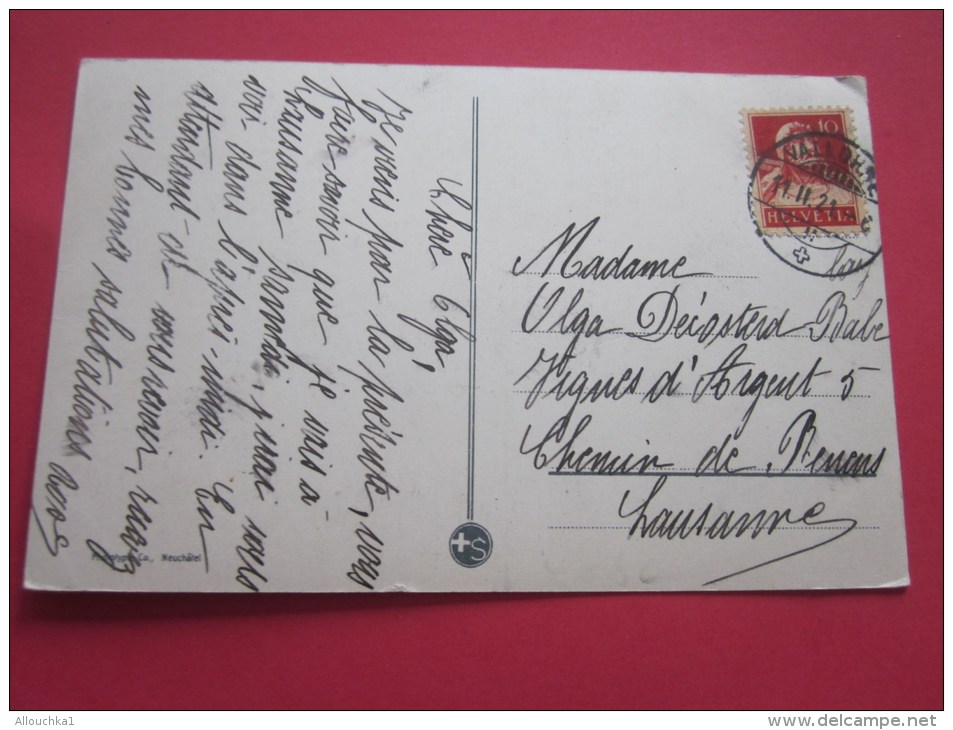 Chère Olga,
Je viens par la présente, vous
faire savoir que je vais à
Lausanne samedi, j'irai vous
voir dans l'après-midi. En
attendant de vous revoir, recevez
mes bonnes salutations
Co., Neuchâtel
S
10
HELVETIA
VALLORBE
11.II.21
Madame
Olga Décosterd
Vignes d'Argent 5
Chemin de Renens
Lausanne
Allouchka1
www.delcampe.net